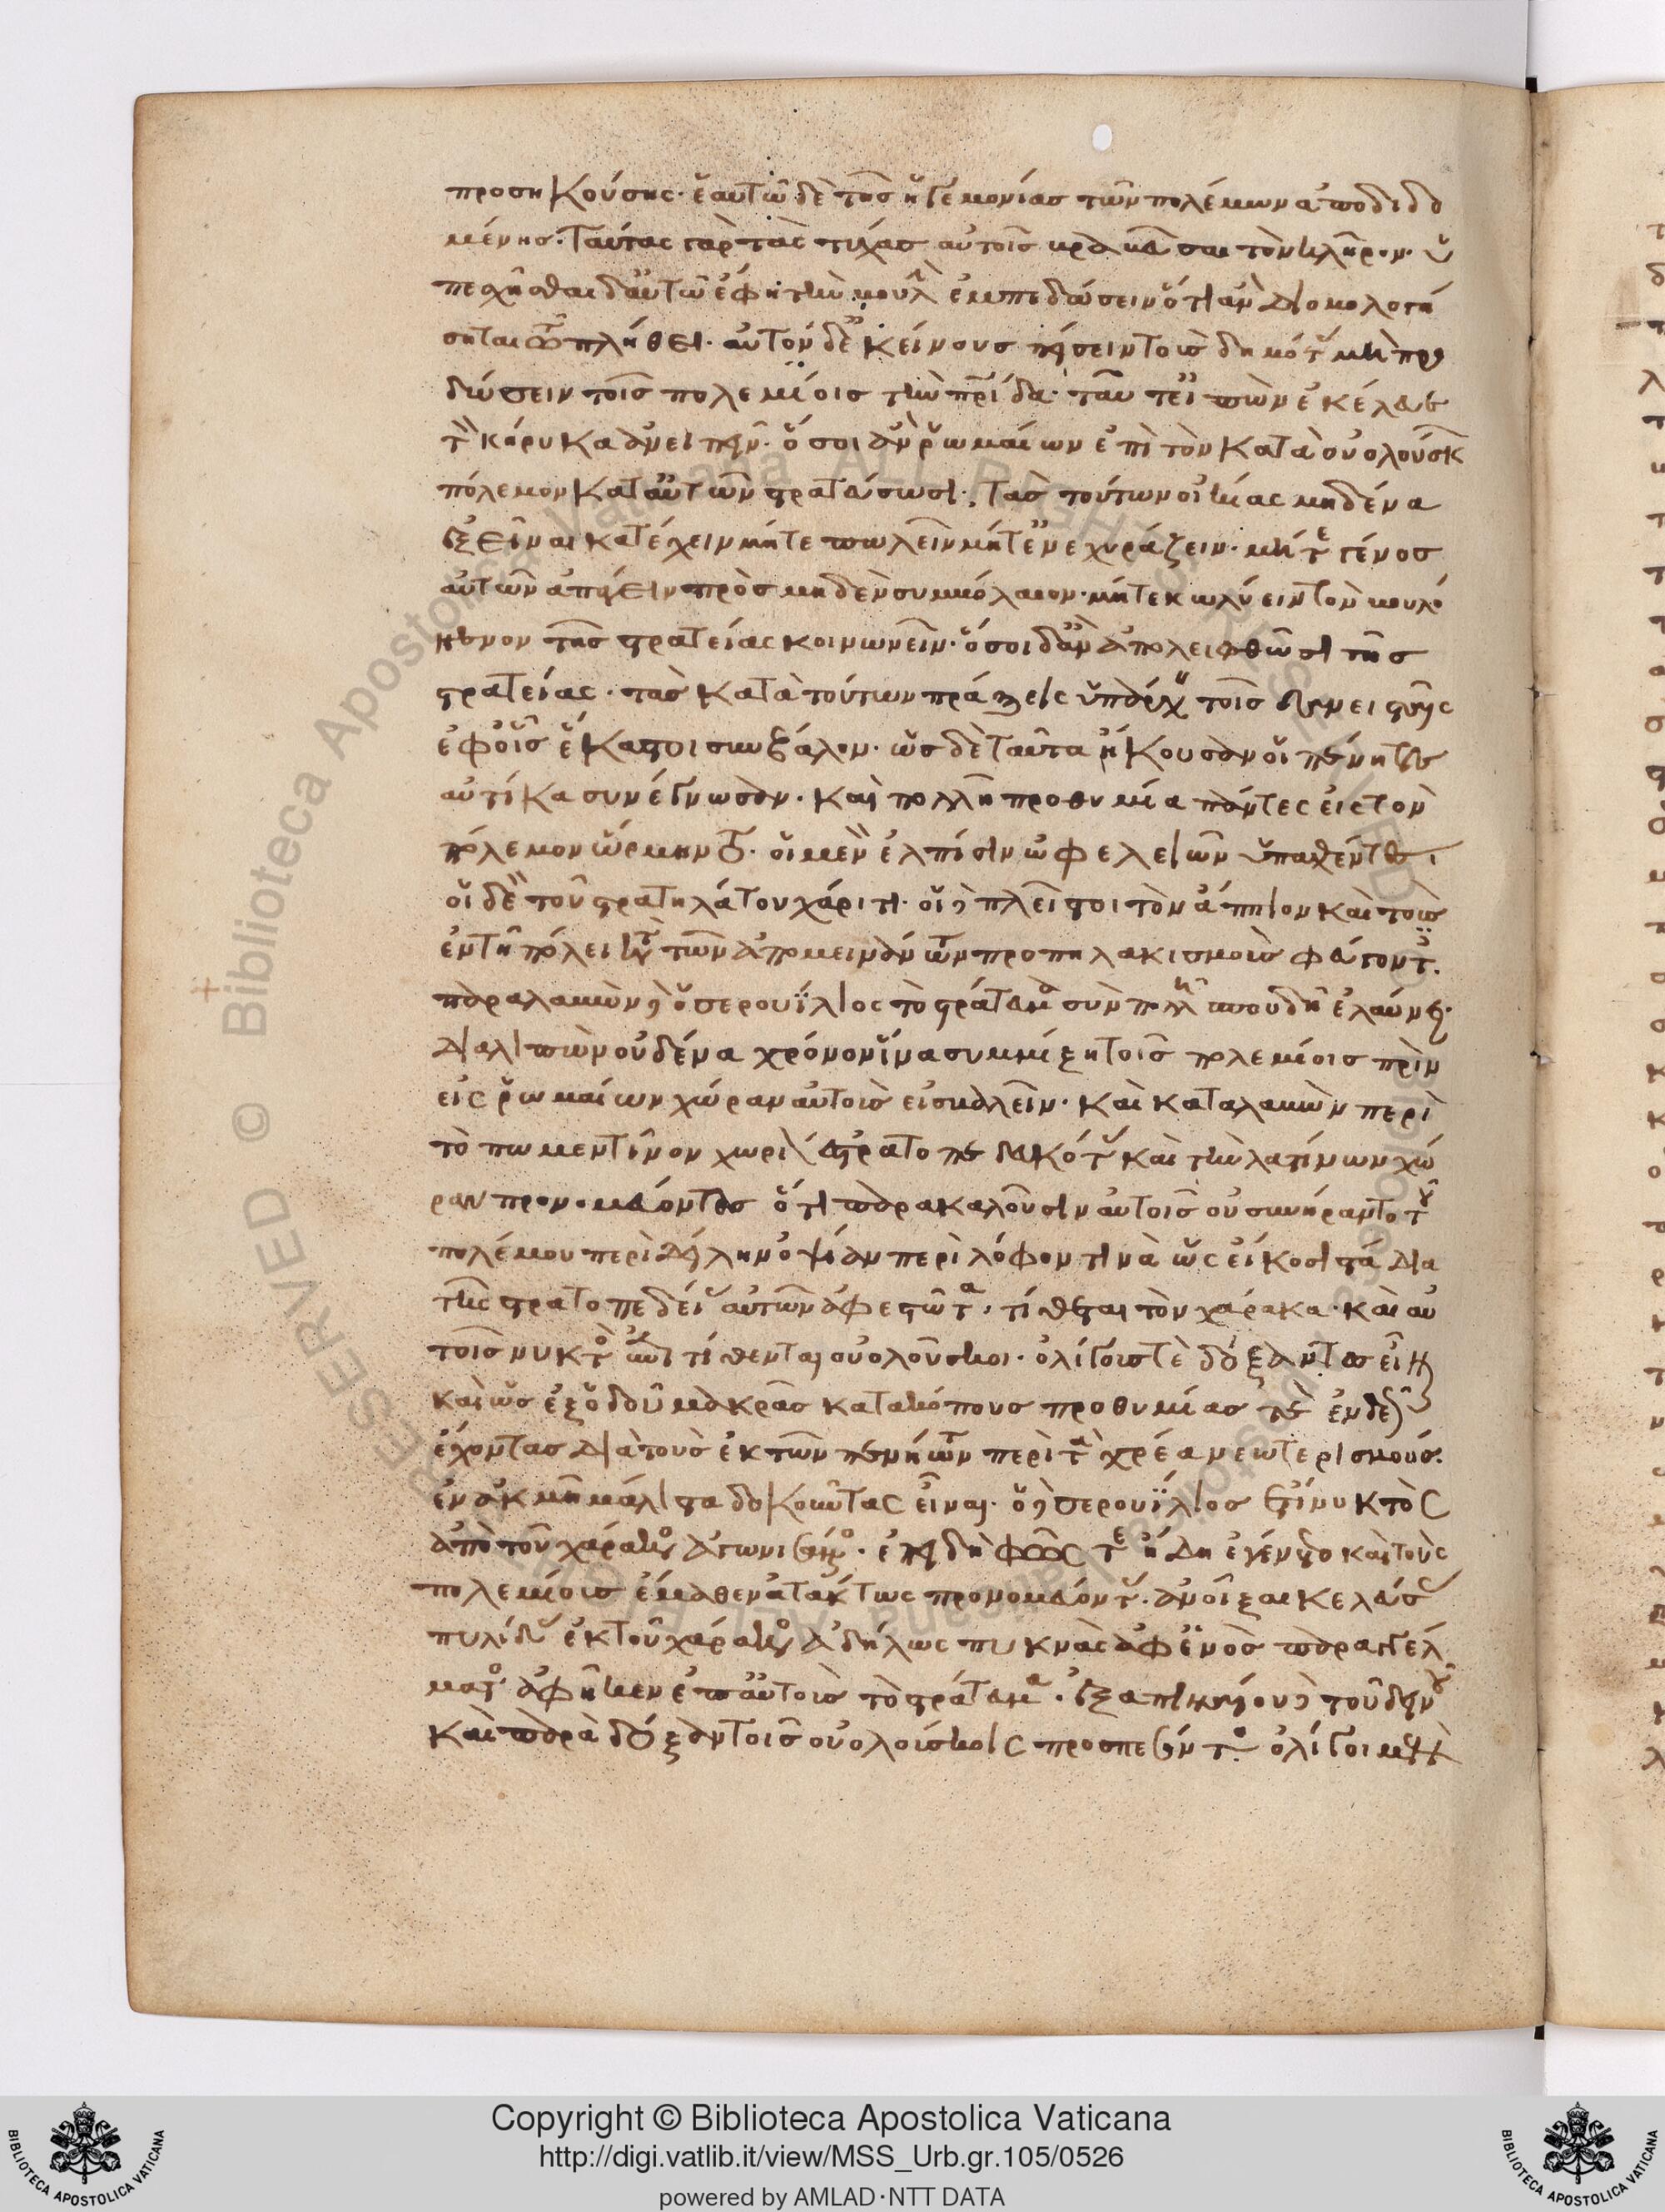 προσηκούσης· ἑαυτῶ δὲ τῆς ἡγεμονίας τῶν πολέμων ἀποδιδο
μένης· ταύτας γὰρ τὰς τύχας αὐτοῖς βραβεῦσαι τὸν κλῆρον· ὑ
πεσχῆσθαι δ' αὐτῶ ἔφη τὴν βουλὴν ἐμπεδώσειν ὅτι ἂν διομολογή
σηται τῶ πλήθει· αὐτὸν δ' ἐκείνους πείσειν τοὺς δημότας μὴ προ
δώσειν τοῖς πολεμίοις τὴν πατρίδα· ταῦτ' εἰπὼν ἐκέλευσε
τὸν κήρυκα ἀνειπεῖν· ὅσοι ἂν ῥωμαίων ἐπὶ τὸν κατὰ οὐολούσκων
πόλεμον κατ' αὐτῶν στρατεύσωσι· τὰς τούτων οἰκίας μηδένα
ἐξεῖναι κατέχειν μήτε πωλεῖν μήτ' ἐνεχυράζειν· μήτε γένος
αὐτῶν ἀπάγειν πρὸς μηδὲν συμβόλαιον· μήτε κωλύειν τὸν βουλό
μενον τῆς στρατείας κοινωνεῖν· ὅσοι δ' ἂν ἀπολειφθῶσι τῆς
στρατείας· τὰς κατὰ τούτων πράξεις ὑπάρχειν τοῖς δανεισταῖς
ἐφ' οἷς ἕκαστοι συνέβαλον· ὡς δὲ ταῦτα ἤκουσαν οἱ πένητες
αὐτίκα συνέγνωσαν· καὶ πολλῆ προθυμία πάντες εἰς τὸν
πόλεμον ὥρμηντο· οἱ μὲν ἐλπίσιν ὠφελειῶν ὑπαχθέντες
οἱ δὲ τοῦ στρατηλάτου χάριτι· οἱ δὲ πλεῖστοι τὸν ἄππιον καὶ τοὺς
ἐν τῆ πόλει κατὰ τῶν ἀπομεινάντων προπηλακισμοὺς φεύγοντες·
παραλαβὼν δὲ ὁ σερουΐλιος τὸ στράτευμα σὺν πολλῆ σπουδῆ ἐλαύνει·
διαλιπὼν οὐδένα χρόνον ἵνα συμμίξη τοῖς πολεμίοις πρὶν
εἰς ῥωμαίων χώραν αὐτοὺς εἰσβαλεῖν· καὶ καταλαβὼν περὶ
τὸ πωμεντῖνον χωρίον ἐστρατοπεδευκότας καὶ τὴν λατίνων χώ
ραν προνομεύοντες ὅτι παρακαλοῦσιν αὐτοῖς οὐ συνήραντο τοῦ
πολέμου περὶ δείλην ὀψίαν περὶ λόφον τινὰ ὡς εἴκοσι στάδια
τῆς στρατοπεδείας αὐτῶν ἀφεστῶτα· τίθεται τὸν χάρακα· καὶ αὐ
τοῖς νυκτὸς ἐπιτίθενται οὐολοῦσκοι· ὀλίγους τὲ δόξαντες εἶναι
καὶ ὡς ἐξ ὁδοῦ μακρᾶς κατακόπους προθυμίας τὲ ἐνδεῶς
ἔχοντας διὰ τοὺς ἐκ τῶν πενήτων περὶ τὰ χρέα νεωτερισμούς·
ἐν ἀκμῆ μάλιστα δοκοῦντας εἶναι· ὁ δὲ σερουΐλιος ἔτι νυκτὸς
ἀπὸ τοῦ χάρακος ἀγωνισάμενος· ἐπειδὴ φῶς τε ἤδη ἐγένετο καὶ τοὺς
πολεμίους ἔμαθεν ἀτάκτως προνομεύοντας· ἀνοῖξαι κελεύσας
πυλίδας ἐκ τοῦ χάρακος ἀδήλως πυκνὰς ἀφ' ἑνὸς παραγγέλ
ματος ἀφῆκεν ἐπ' αὐτοὺς τὸ στράτευμα· ἐξαπιναίου δὲ τοῦ δεινοῦ
καὶ παρὰ δόξαν τοῖς οὐολούσκοις προσπεσόντος ὀλίγοι μέν